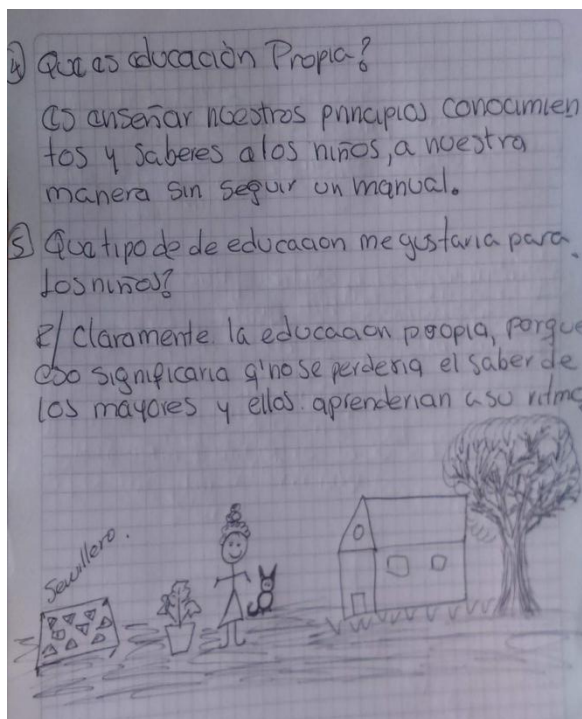 4) Que es educación Propia?
Es enseñar nuestros principios conocimien
tos y saberes a los niños, a nuestra
manera sin seguir un manual.
5) Que tipo de de educacion me gustaria para
los niños?
R/ Claramente la educacion propia, porque
eso significaria q' no se perderia el saber de
los mayores y ellos aprenderian a su ritmo
Semillero.